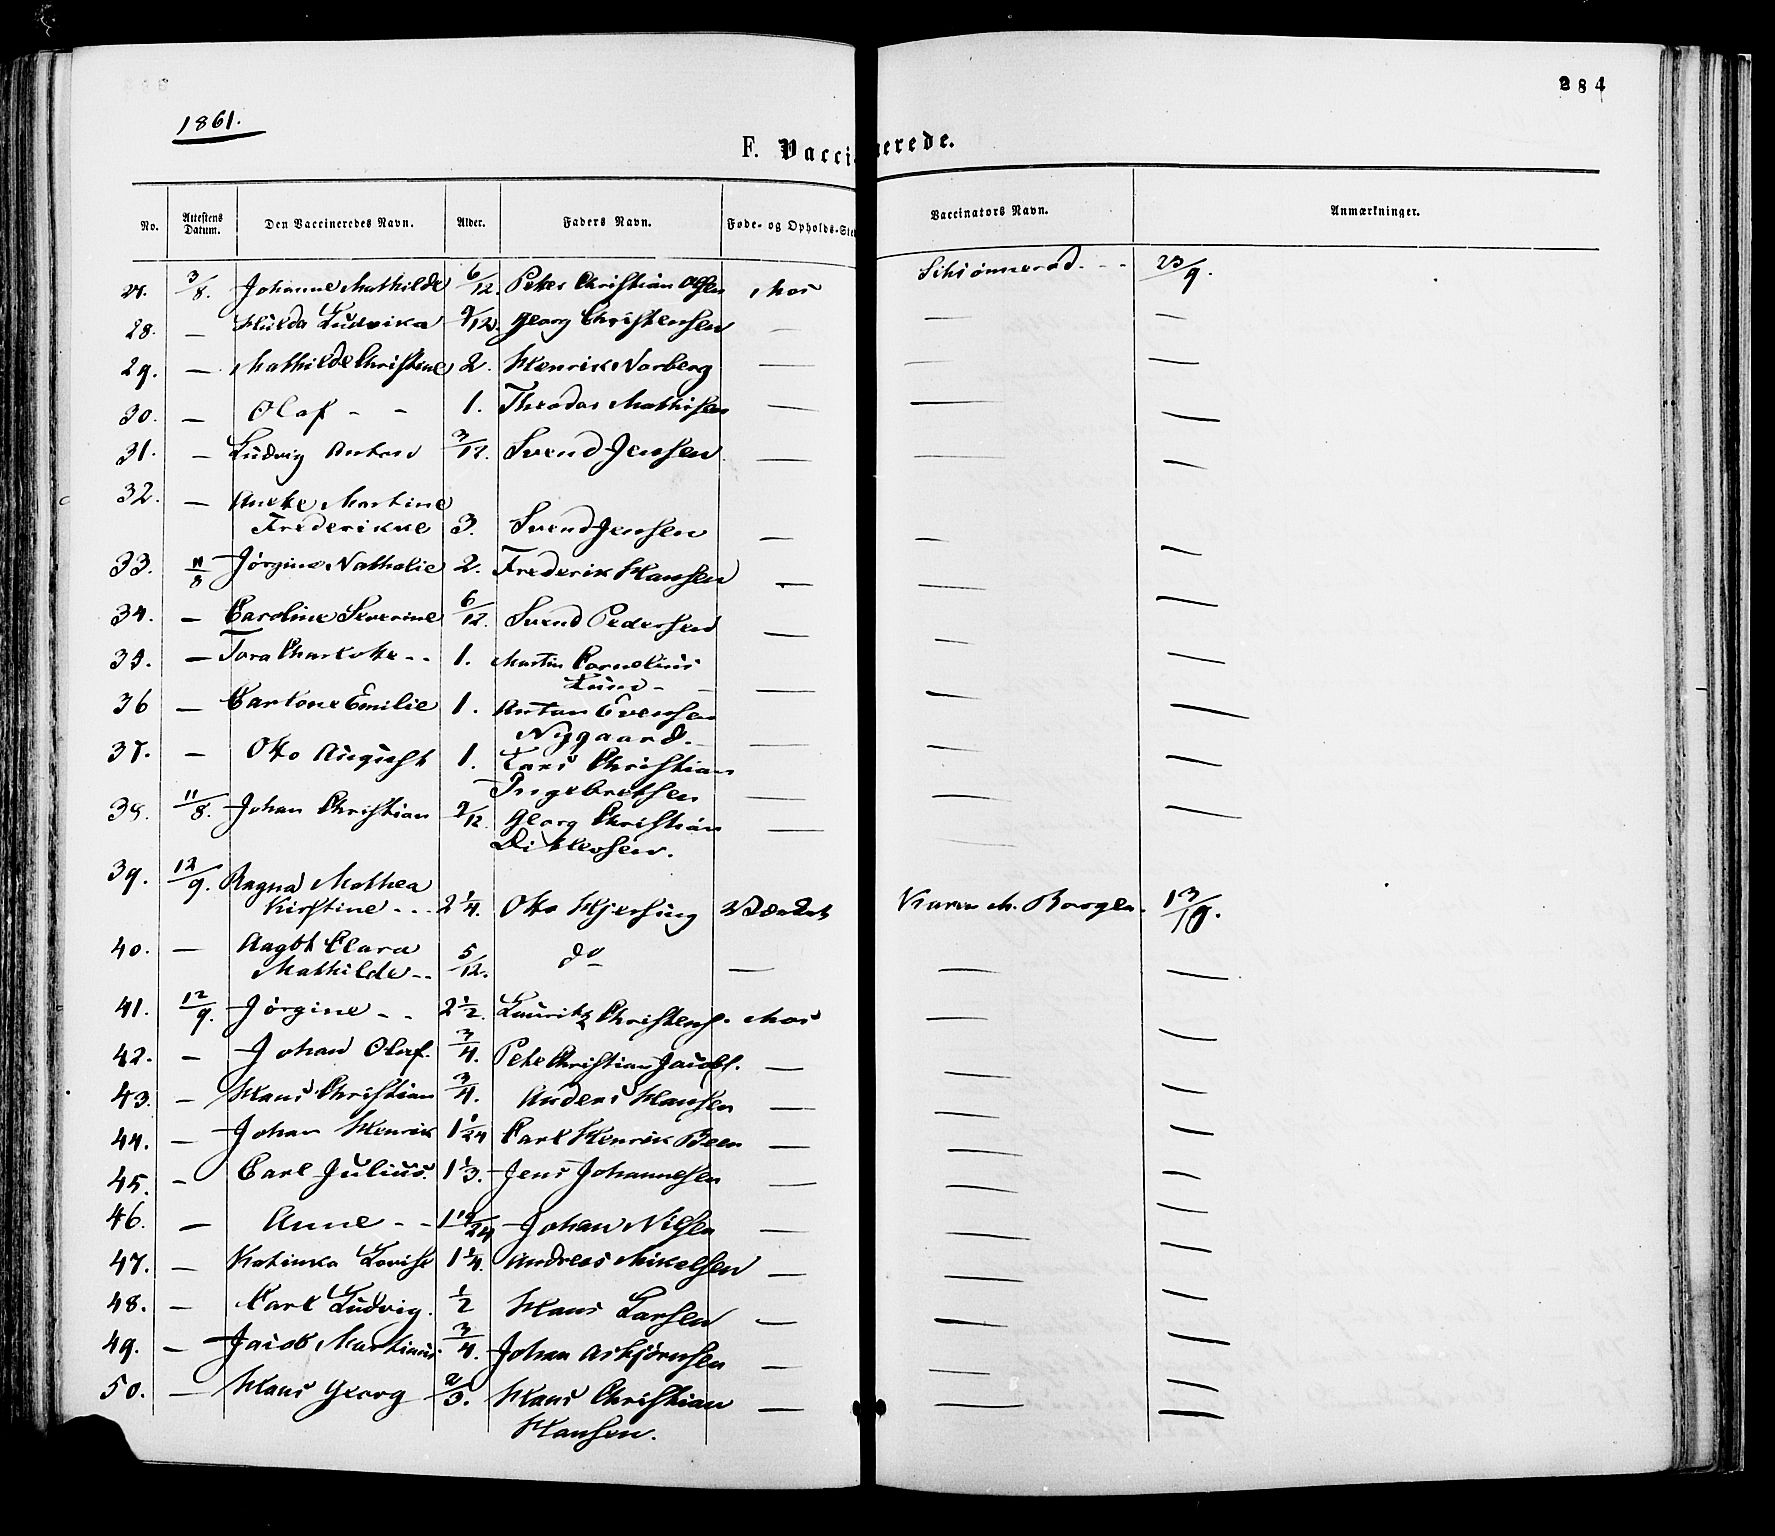 284
1861.
F. Vaccinerede.
No. Attestens Datum. Den Vaccineredes Navn. Alder. Faders Navn. Føde- og Opholds-Sted Vaccinators Navn. Anmærkninger.
27. 3/8. Johanne Mathilde 6/12. Peter Christian Olsen Mos 23/9.
28. — Hulda Ludvika 9/12. Georg Christensen — — —
29. — Mathilde Christine 2. Henrik Norberg — — —
30. — Olaf - - 1. Theodor Mathisen — — —
31. — Ludvig Anton 3/12. Svend Jensen — — —
32. — Anette Martine
Frederikke 3. Svend Jensen — — —
33. 11/8 Jørgine Nathalie 2. Frederik Hansen — — —
34. — Caroline Severine 6/12. Svend Pedersen — — —
35. — Tora Charlotte - - 1. Martin Cornelius
Lund - - — — —
36 — Emilie 1. Anton Evensen
Nygaard. — — —
37. — Otto August 1. Lars Christian
Ingebretsen — — —
38. 11/8. Johan Christian 9/12. Georg Christian
Ditlevsen. — — —
39. 12/9. Ragna Mathea
Kirstine - - 2 1/4. Otto Karen M. Borgen. 13/10.
40. — Aagot Clara
Mathilde - - 5/12. do — — —
41. 12/9. Jørgine - - 2 1/2. Lauritz Christens. Mos — —
42. — Johan Olaf. 3/4. Peter Christian Jacobs. — — —
43. — Hans Christian 3/4. Anders Hansen — — —
44. — Johan Henrik 1 1/24 Carl Henrik Been — — —
45. — Carl Julius. 1 1/3. Jens Johannesen — — —
46. — Anne - - Johan Nilsen — — —
47. — Katinka Lovise 1 1/4. Andreas Mikelsen — — —
48. — Carl Ludvig. 1/2 Hans Larsen — — —
49. — Jacob Martinius. 3/4. Johan Asbjørnsen — — —
50. — Hans Georg 2/3. Hans Christian
Hansen. — — —